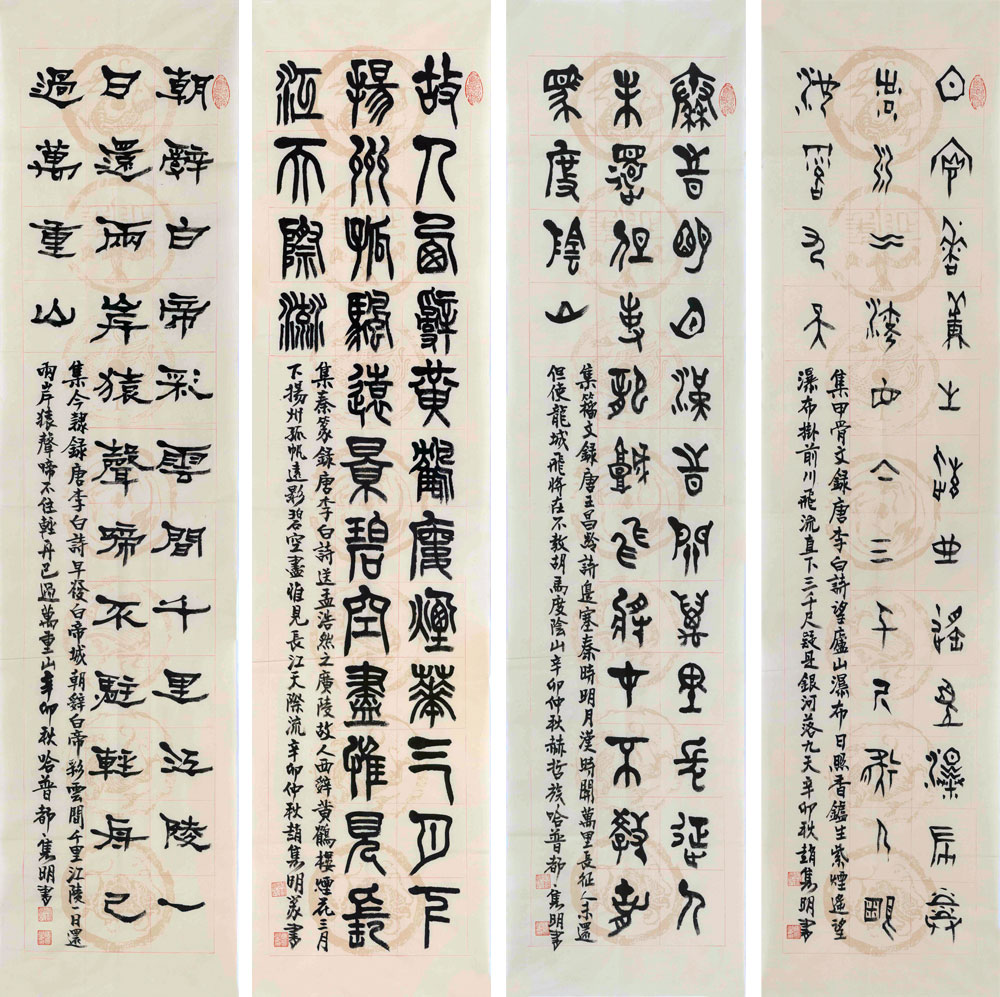 日照香爐生紫煙遙望瀑布掛
前川飛流直下三千尺疑是銀
河落九天
集甲骨文録唐李白詩望廬山瀑布日照香鑪生紫煙遙望
瀑布掛前川飛流直下三千尺疑是銀河落九天辛卯秋趙隽明書
秦時明月漢時關萬里長征人
未還但使龍城飛將在不教胡
馬度陰山
集籀文録唐王昌齡詩邊塞秦時明月漢時關萬里長征人未還
但使龍城飛將在不教胡馬度陰山辛卯仲秋赫哲族哈普都·隽明書
故人西辭黃鶴樓煙華三月下
揚州孤帆遠景碧空盡惟見長
江天際流
集秦篆録唐李白詩送孟浩然之廣陵故人西辭黃鶴樓煙花三月
下揚州孤帆遠影碧空盡惟見長江天際流辛卯仲秋趙隽明篆書
朝辭白帝彩雲間千里江陵一
日還兩岸猿聲啼不駐輕舟已
過萬重山
集今隸録唐李白詩早發白帝城朝辭白帝彩雲間千里江陵一日還
兩岸猿聲啼不住輕舟已過萬重山辛卯秋哈普都·隽明書